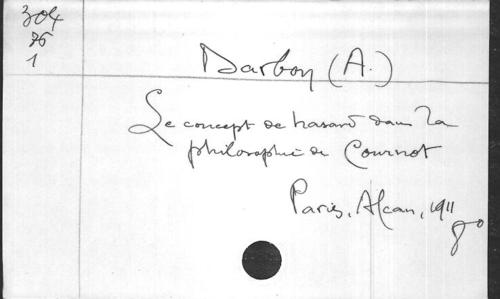 304
76
1
Darbon (A.)
Le concept de hasard dans la
philosophie de Cournot
Paris, Alcan, 1911
8°